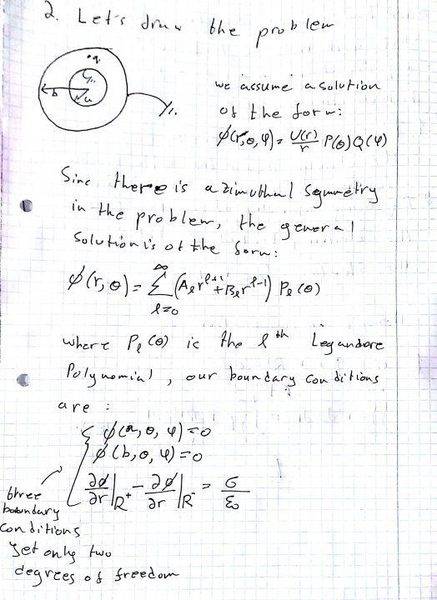 2. Let's draw the problem
q
b
a
we assume a solution
of the form:
ϕ(r,θ,φ) = U(r)/r P(θ)Q(φ)
Sinc there is azimuthal symmetry
in the problem, the general
solution is of the form:
ϕ(r,θ) = ∑_{l=0}^{∞} (A_l r^{l+1} + B_l r^{l-1}) P_l(θ)
where P_l(θ) is the l^{th} Legandore
Polynomial, our boundary conditions
are:
ϕ(a,θ,φ)=0
ϕ(b,θ,φ)=0
∂ϕ/∂r|_{R^+} - ∂ϕ/∂r|_{R^-} = σ/ε_0
three
boundary
conditions
yet only two
degrees of freedom